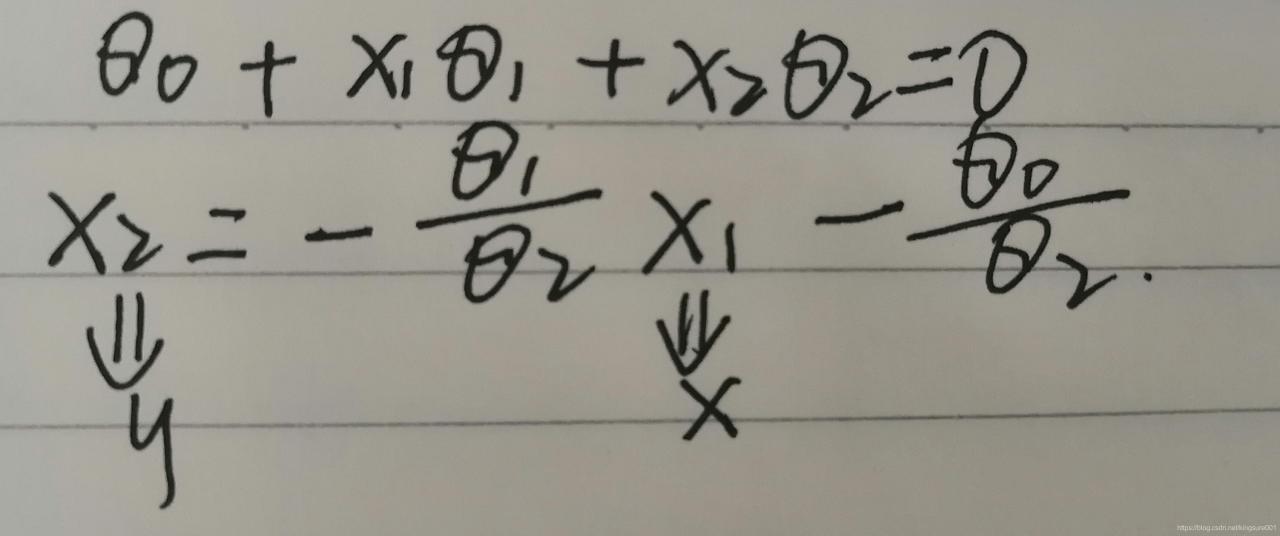 θ₀ + x₁θ₁ + x₂θ₂ = 0
x₂ = - θ₁/θ₂ x₁ - θ₀/θ₂.
⇓ ⇓
y x
https://blog.csdn.net/kingsure001